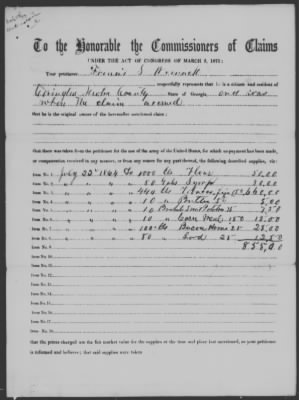 To the Honorable the Commissioners of Claims
UNDER THE ACT OF CONGRESS OF MARCH 3, 1871:
Your petitioner Francis S
respectfully represents that he is a citizen and resident of
Covington Newton County State of Georgia, and was
when the claim accrued
that he is the original owner of the hereinafter mentioned claim;
that there was taken from the petitioner for the use of the army of the United States, for which no payment has been made,
or compensation received in any manner, or from any source for any part thereof, the following described supplies, viz:
Item No. 1. July 22d 1864 To 1000 lbs Flour 50.00
Item No. 2. " " " 50 Gals Syrup
Item No. 3. " " " 440 lbs Tobacco 660.00
Item No. 4. " " " 10 " Butter 50 5.00
Item No. 5. " " " 10 Bushels 7.50
Item No. 6. " " " 10 " Corn Meal 150 15.00
Item No. 7. " " " 100 lbs Bacon Hams 25 25.00
Item No. 8. " " " 50 " Lard 25 12.50
Item No. 9.
Item No. 10.
Item No. 11.
Item No. 12.
Item No. 13.
Item No. 14.
Item No. 15.
Item No. 16.
Item No. 17.
Item No. 18.
that the prices charged are the fair market value for the supplies at the time and place last mentioned, as your petitioner
is informed and believes; that said supplies were taken